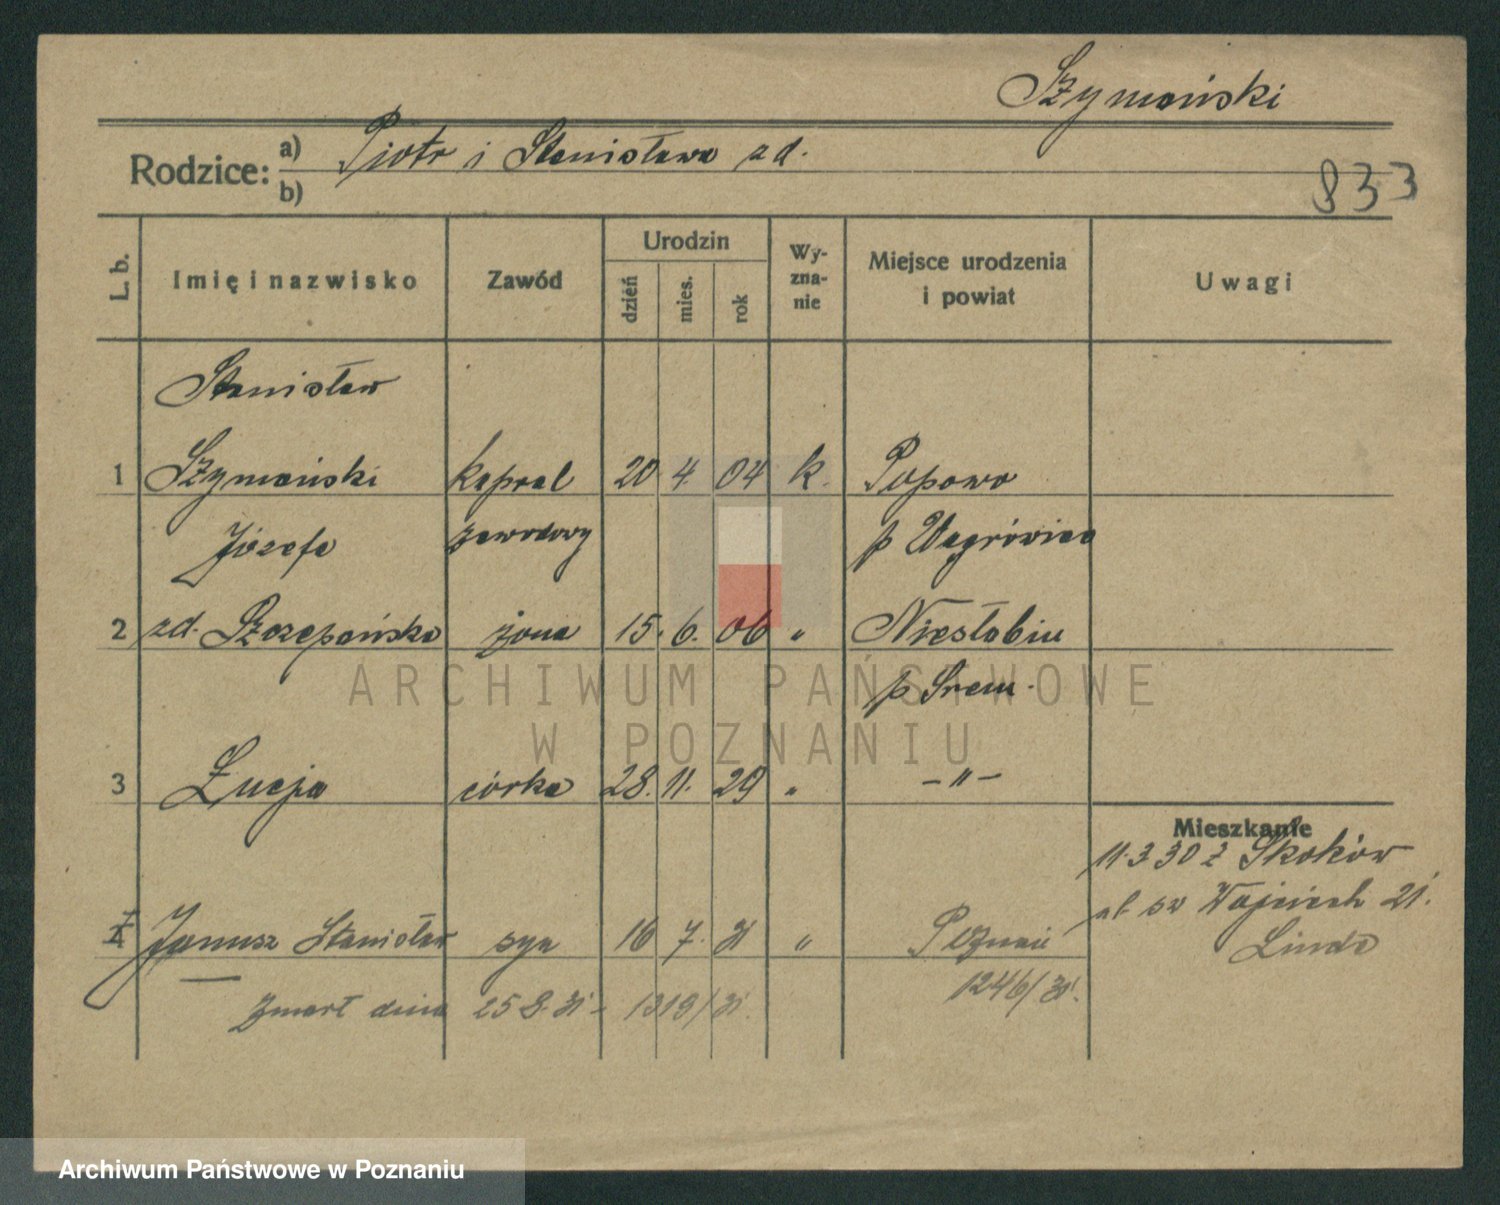 Szymański
Rodzice: a) Piotr i Stanisława zd.
b)
833
L. b.
Imię i nazwisko
Zawód
Urodzin
dzień
mies.
rok
Wy-
zna-
nie
Miejsce urodzenia
i powiat
Uwagi
Stanisław
1 Szymański kapral 20 4 04 k. Popowo
Józefa zawodowy p Wągrówiec
2 zd. Szczepańska żona 15. 6. 06 " Niesłabin
p Śrem.
3 Łucja córka 28. 11. 29 " – " –
Mieszkanie
11.3.30 z Skoków
św Wojciech 21.
4 Janusz Stanisław syn 16 7. 31 " Poznań
1246/31.
Zmarł dnia 25 8. 31 – 1319/31.
ARCHIWUM PAŃSTWOWE
W POZNANIU
Archiwum Państwowe w Poznaniu